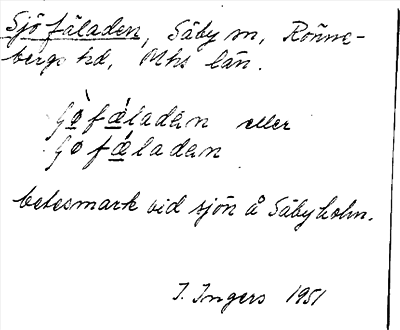 Sjöfäladen, Säby sn, Rönne-
bergs hd, Mhs län.
Sø̀fǽladan eller
Sø fǽladan
betesmark vid sjön å Säbyholm.
I. Ingers 1951